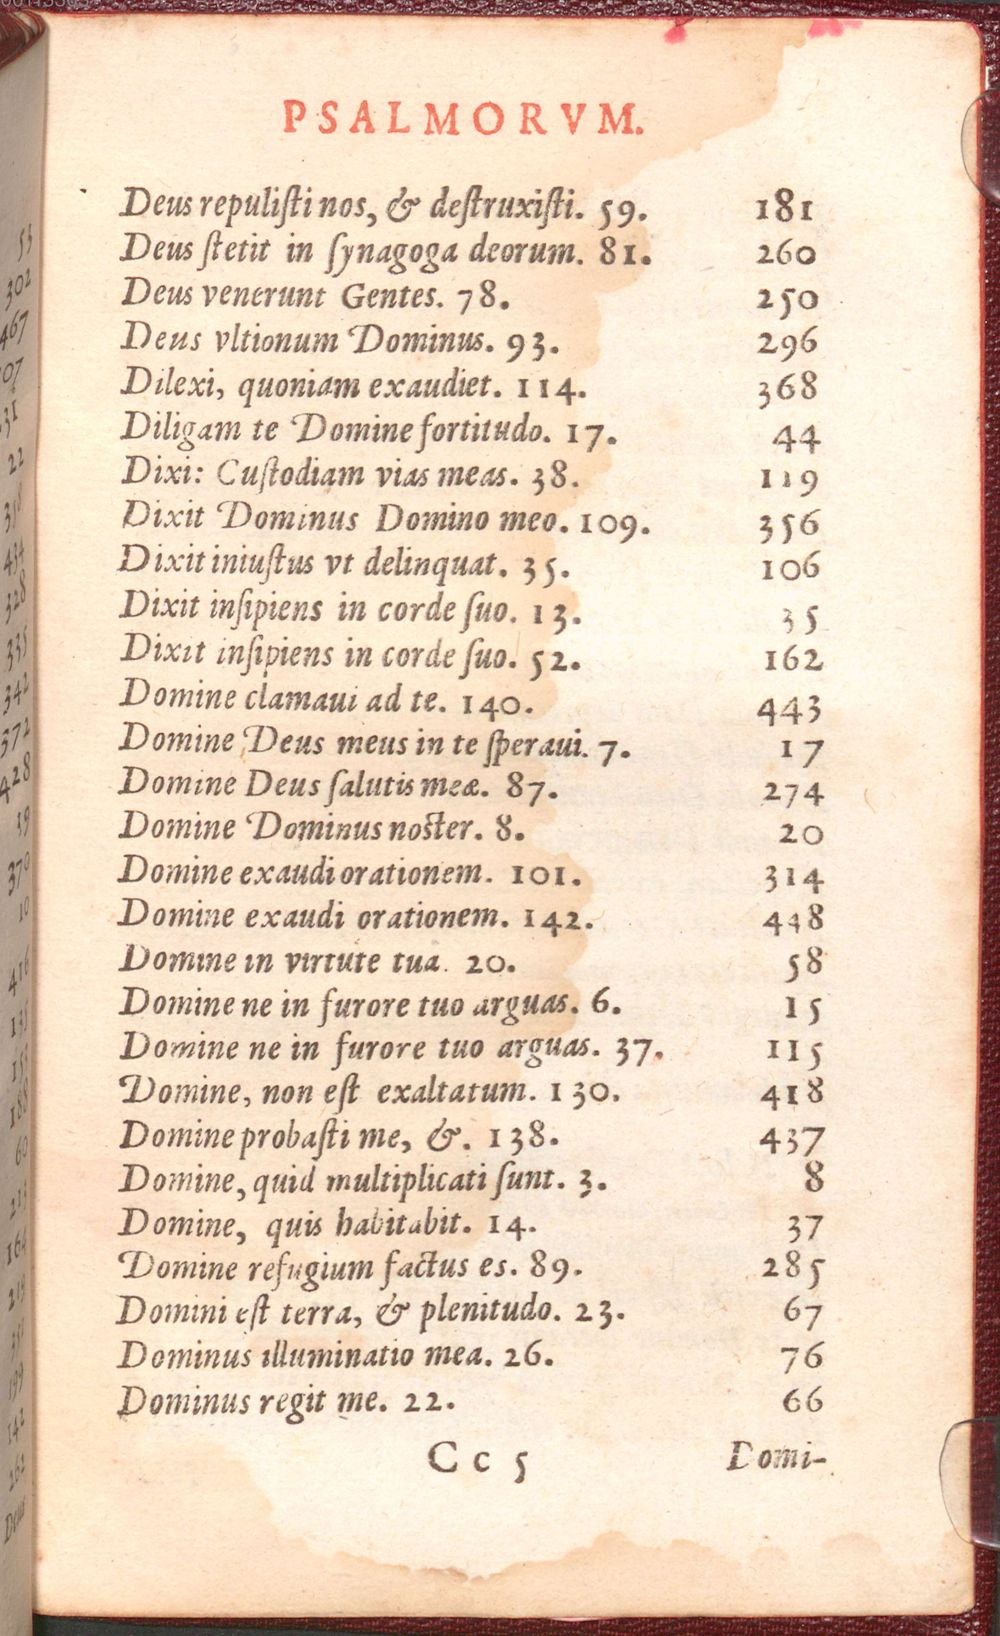 PSALMORVM.
Deus repuliſti nos, & deſtruxiſti. 59. 181
Deus ſtetit in ſynagoga deorum. 81. 260
Deus venerunt Gentes. 78. 250
Deus vltionum Dominus. 93. 296
Dilexi, quoniam exaudiet. 114. 368
Diligam te Domine fortitudo. 17. 44
Dixi: Cuſtodiam vias meas. 38. 119
Dixit Dominus Domino meo. 109. 356
Dixit iniuſtus vt delinquat. 35. 106
Dixit inſipiens in corde ſuo. 13. 35
Dixit inſipiens in corde ſuo. 52. 162
Domine clamaui ad te. 140. 443
Domine Deus meus in te ſperaui. 7. 17
Domine Deus ſalutis meæ. 87. 274
Domine Dominus noſter. 8. 20
Domine exaudi orationem. 101. 314
Domine exaudi orationem. 142. 448
Domine in virtute tua. 20. 58
Domine ne in furore tuo arguas. 6. 15
Domine ne in furore tuo arguas. 37. 115
Domine, non eſt exaltatum. 130. 418
Domine probaſti me, &. 138. 437
Domine, quid multiplicati ſunt. 3. 8
Domine, quis habitabit. 14. 37
Domine refugium factus es. 89. 285
Domini eſt terra, & plenitudo. 23. 67
Dominus illuminatio mea. 26. 76
Dominus regit me. 22. 66
Cc 5 Domi-